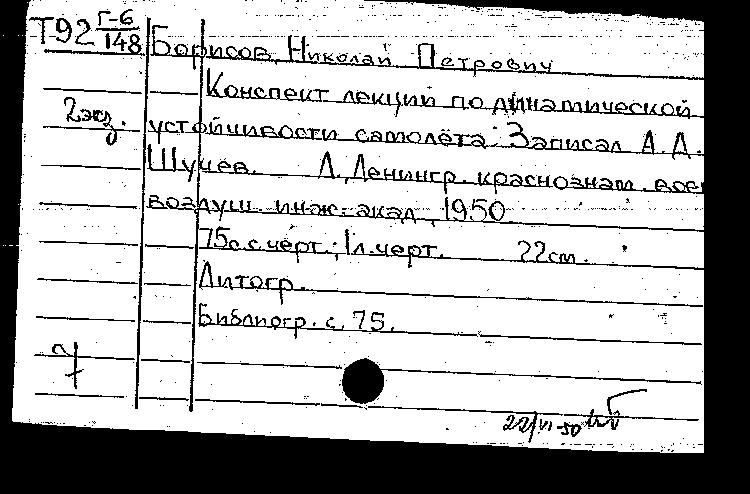 Т92 Г-6/148
Борисов, Николай Петрович
Конспект лекций по динамической
2 экз. устойчивости самолёта. Записал А.Д.
Шучев. Л., Ленингр. краснознам. вое
воздуш. инж. акад., 1950
75 с. с черт.; 1 л. черт. 22 см.
Литогр.
Библиогр. с. 75.
22/VI-50